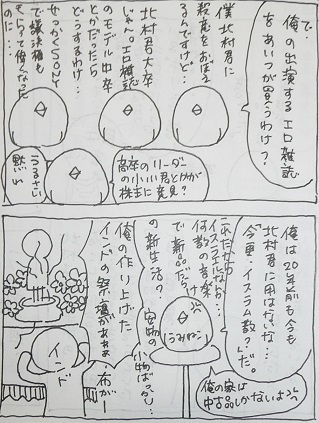 で
俺の出演するエロ雑誌
をあいつが買うわけ?
僕北村君に
殺意をおぼえ
るんですけど…
北村君大卒
じゃん。エロ雑誌
のモデル中卒
とかだったら
どうするわけ…
せっかくSONY
で議決権も
もらって偉くなった
のに…
高卒のリーダー
の小山君とかが
株主に意見?
うるさい
黙れ
俺は20年前も今も
北村君に用はないな…
「今更・イスラム教?」だ。
これだから
イスラムなんか
何教の音楽
で新品だらけ
の新生活?
うみねこ
俺の家は
中古品しかないよ
安物の
小物ばっかし…
俺の作り上げた
インドの祭壇がぁぁぁ・布がー
インド